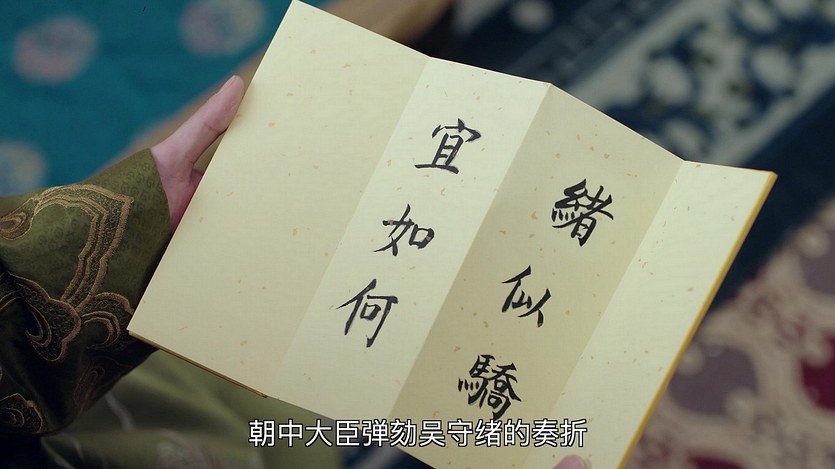 緒似驕
宜如何
朝中大臣弹劾吴守绪的奏折